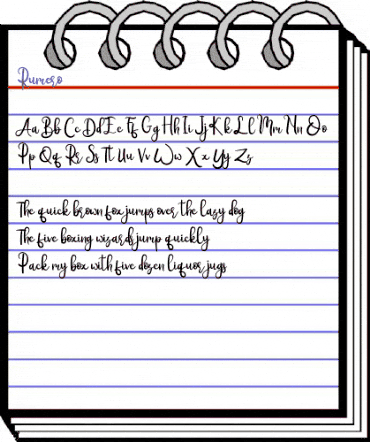 Rumeso
Aa Bb Cc Dd Ee Ff Gg Hh Ii Jj Kk Ll Mm Nn Oo
Pp Qq Rr Ss Tt Uu Vv Ww Xx Yy Zz
The quick brown fox jumps over the lazy dog
The five boxing wizards jump quickly
Pack my box with five dozen liquor jugs